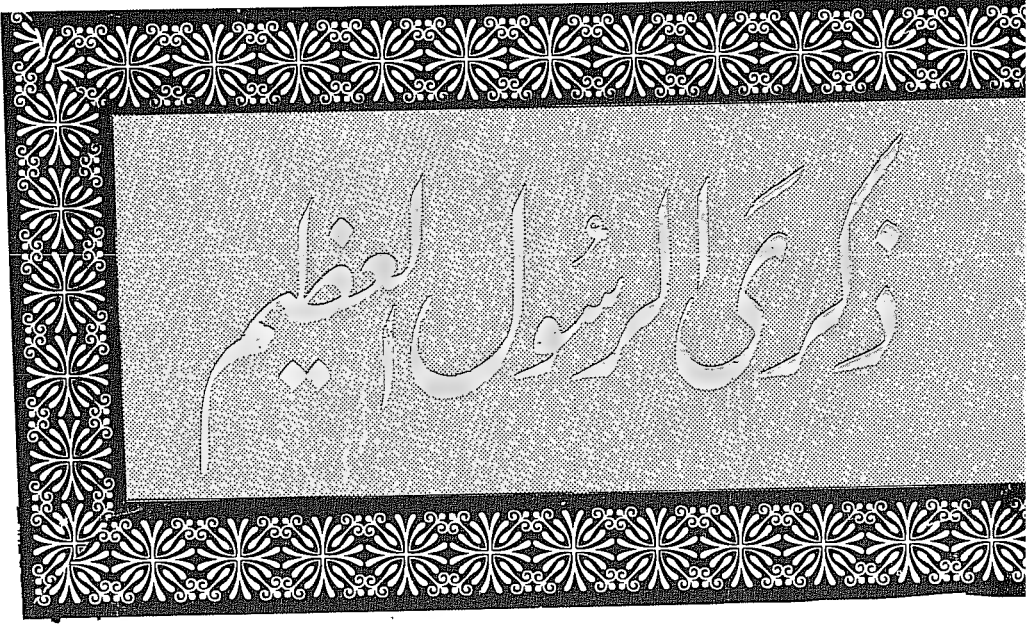 ذكرَى الرسُول العظيم